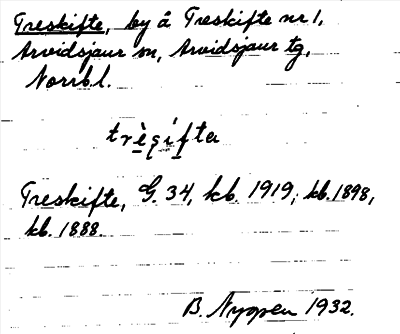 Treskifte, by å Treskifte nr 1,
Arvidsjaur sn, Arvidsjaur tg,
Norrb l.
trèsi̇́fta
Treskifte, G. 34, kb. 1919; kb. 1898,
kb. 1888.
B. Nygren 1932.